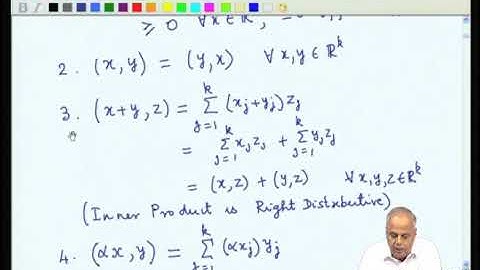 ≥ 0 ∀ x ∈ ℝ
2. (x, y) = (y, x) ∀ x, y ∈ ℝ^k
3. (x+y, z) = ∑_{j=1}^{k} (x_j + y_j) z_j
= ∑_{j=1}^{k} x_j z_j + ∑_{j=1}^{k} y_j z_j
= (x, z) + (y, z) ∀ x, y, z ∈ ℝ^k
(Inner Product is Right Distributive)
4. (αx, y) = ∑_{j=1}^{k} (αx_j) y_j